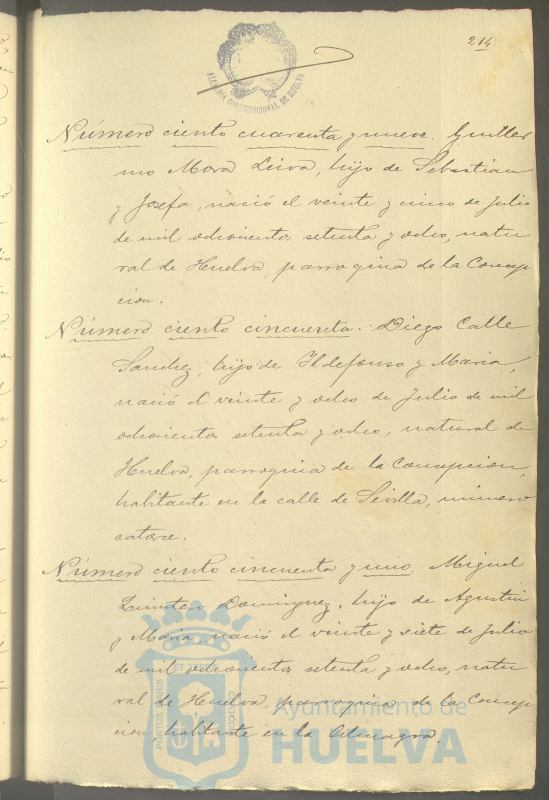 214
ALCALDÍA CONSTITUCIONAL DE HUELVA
Número ciento cuarenta y nueve. Guiller
mo Mora Leiva, hijo de Sebastian
y Josefa, nació el veinte y cinco de Julio
de mil ochocientos setenta y ocho, natu
ral de Huelva, parroquia de la Concep
cion.
Número ciento cincuenta. Diego Calle
Sanchez, hijo de Ildefonso y Maria,
nació el veinte y ocho de Julio de mil
ochocientos setenta y ocho, natural de
Huelva, parroquia de la Concepcion,
habitante en la calle de Sevilla, número
catorce.
Número ciento cincuenta y uno. Miguel
Quintero Dominguez, hijo de Agustin
y Maria, nació el veinte y siete de Julio
de mil ochocientos setenta y ocho, natu
ral de Huelva parroquia de la Concep
cion habitante en la Almagra.
PORTUS MARIS ET TERRAE CUSTODIA
Ayuntamiento de
HUELVA